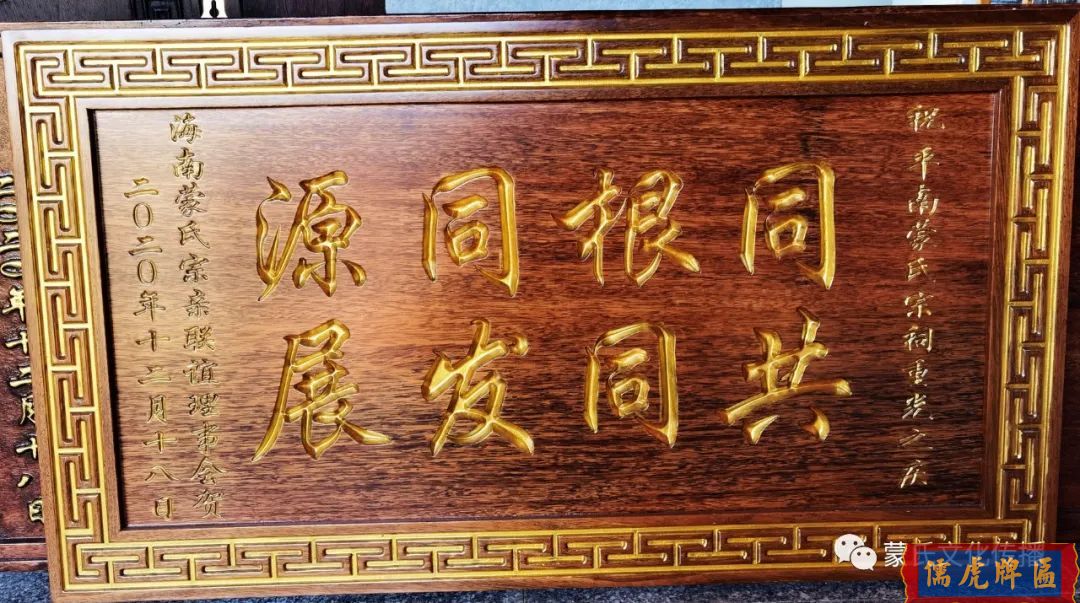 祝平南蒙氏宗祠重光之庆
同根同源
共同发展
海南蒙氏宗亲联谊理事会贺
二〇二〇年十二月十八日
二〇二〇年十二月十八日
蒙氏文化传播
儒虎牌匾